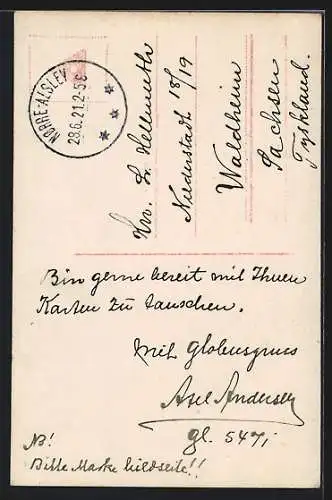 NØRRE-ALSLEV
28.6.21.2-5E
Hrn. Lr. Hellmuth
Niederstadt 18/19
Waldheim
Sachsen
Tyskland.
Bin gerne bereit mit Ihnen
Karten zu tauschen.
Mit Globusgruss
Axel Andersen
gl. 5471
NB!
Bitte Marke bildseite!!